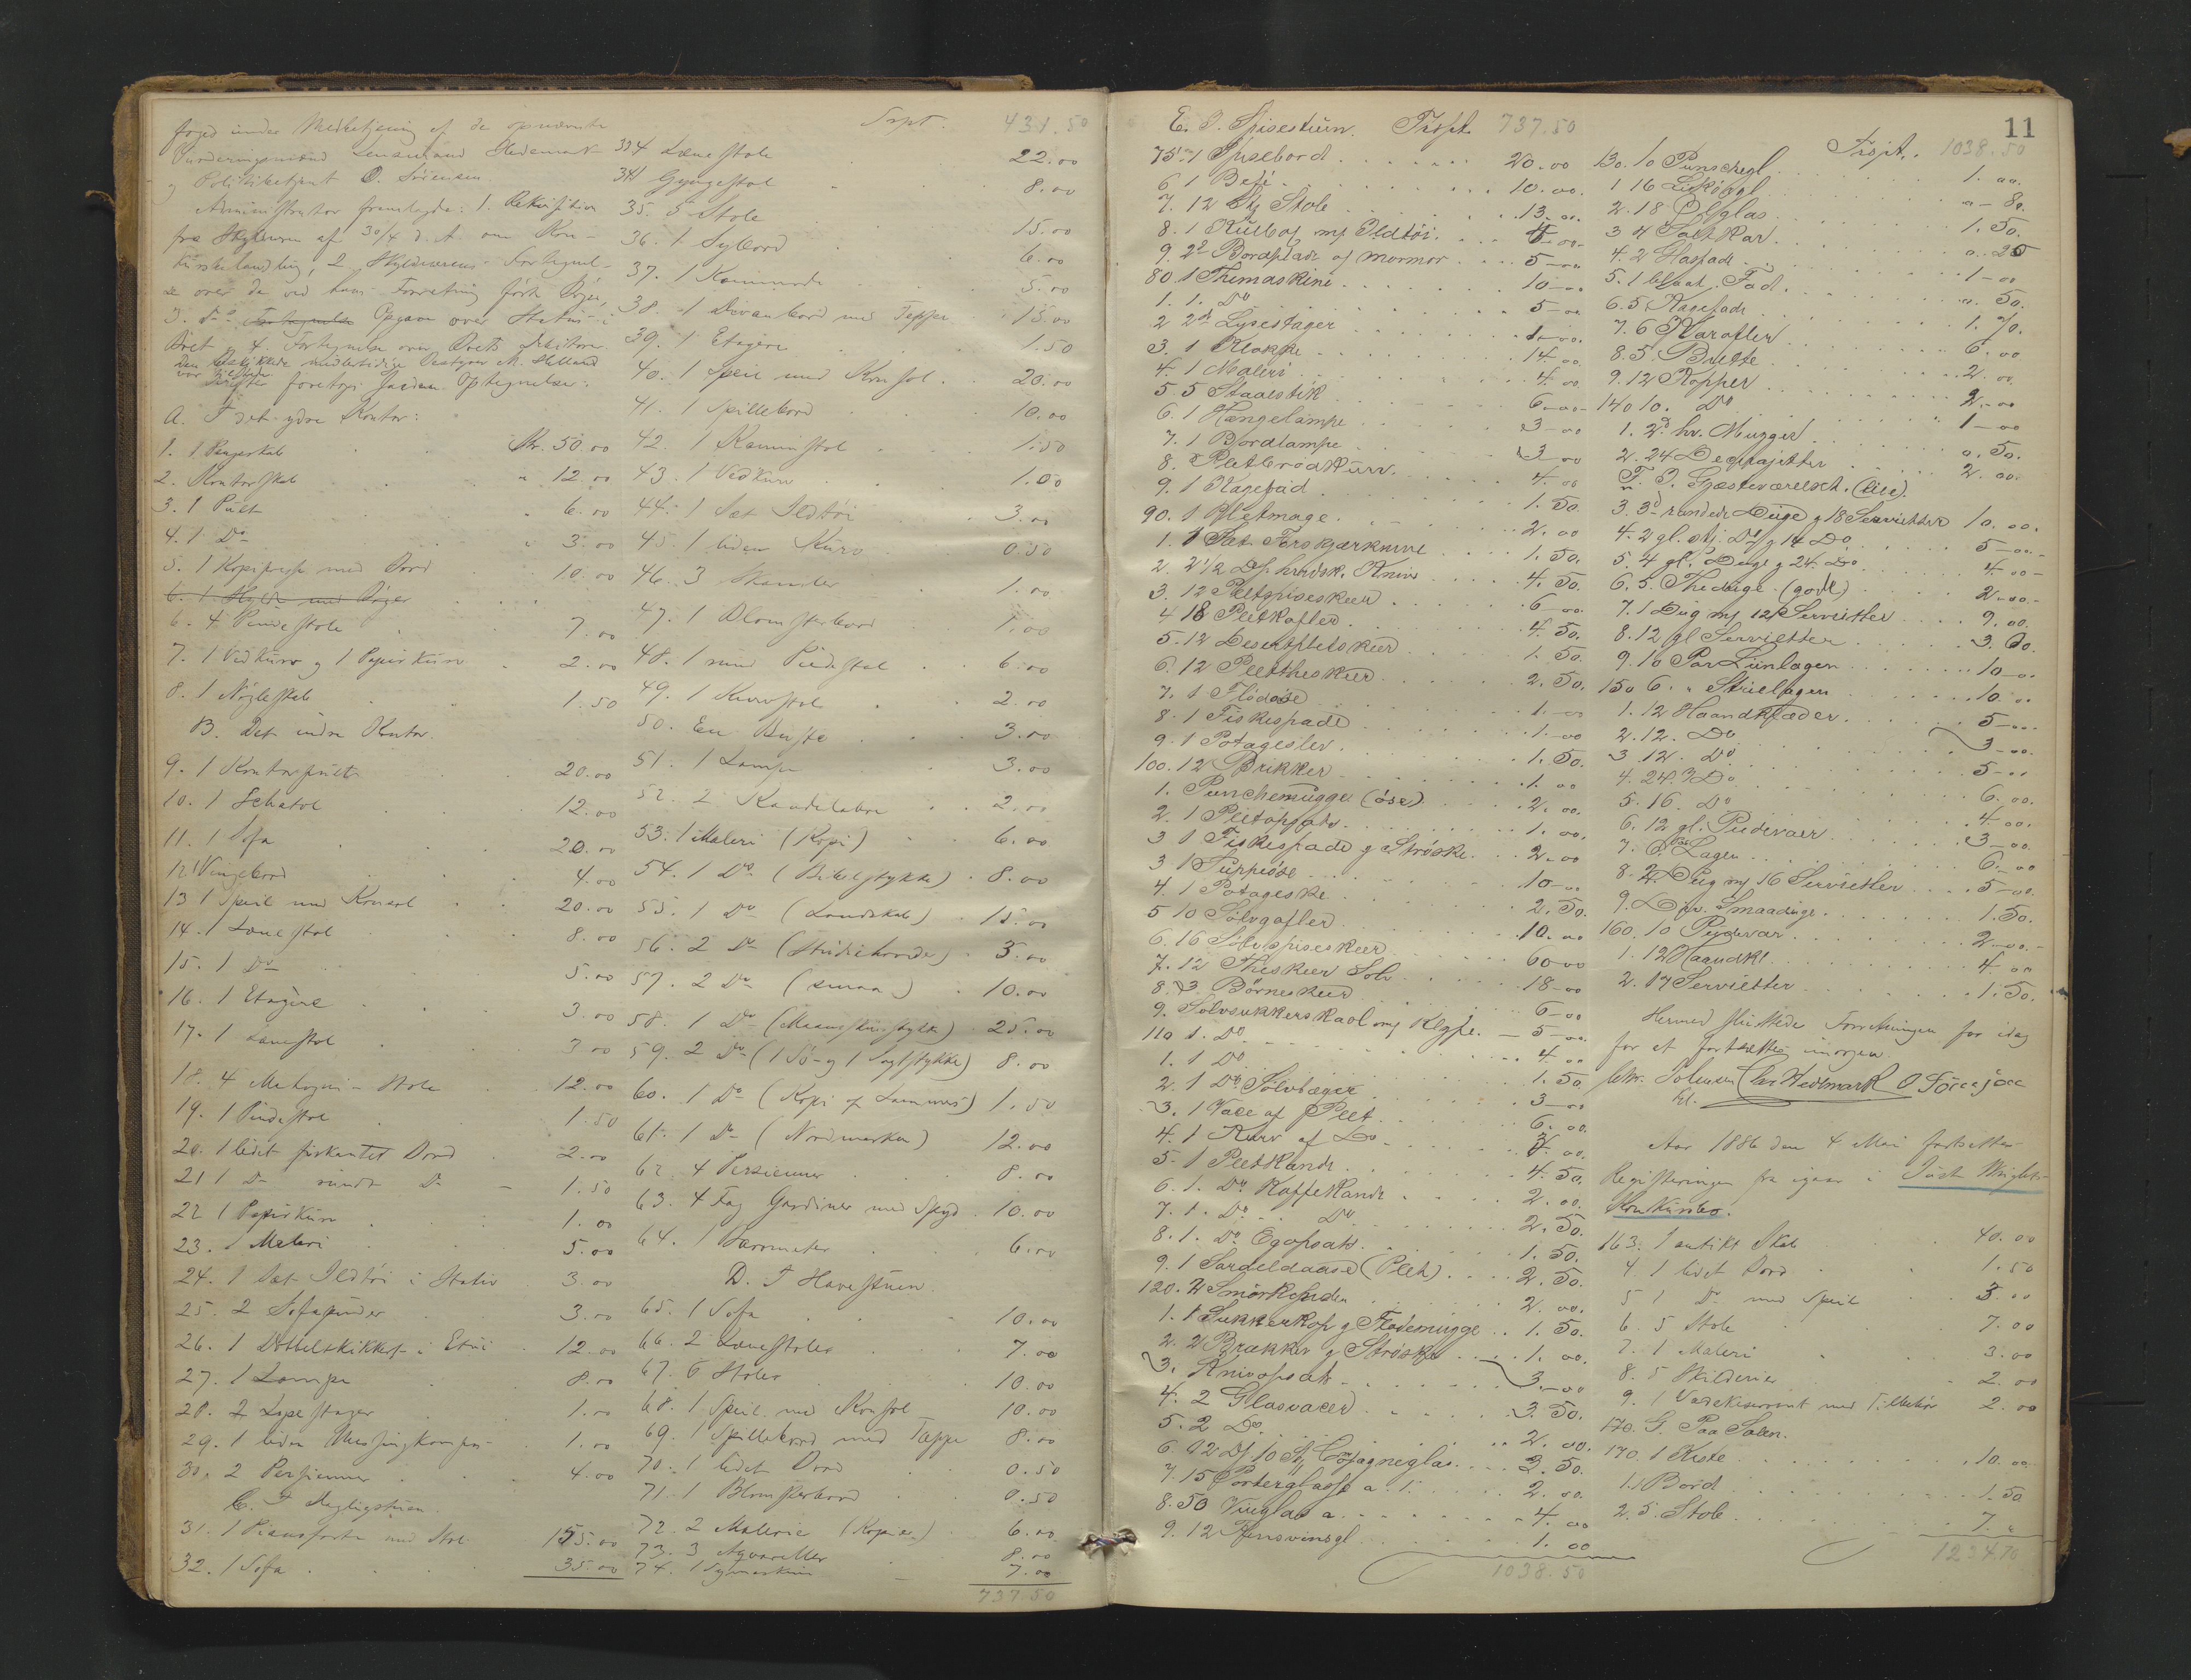 foged under Medbetjening af de opnævnte
Vurderingsmænd Lensmand Hedemark
og Politibetjent O. Sörensen.
Administrator fremlagde: 1. Rekvisition
fra Skyldneren af 30/4 d. A. om Kon-
kursbehandling, 2, Skyldnerens Fortegnel-
se over de ved hans Forretning førte Bøger,
3. do Fortegnelse Opgave over Status i
Boet, 4. Fortegnelse over Boets Debitorer.
Den beskikkede midlertidige Bestyrer M. Helland
var tilstede
foretoges saadan Optegnelse:
A. I det ydre Kontor:
1. 1 Pengeskab Kr. 50.00
2. Kontorskab " 12.00
3. 1 Pult " 6.00
4. 1 Do " 3.00
5. 1 Kopipresse med Bord 10.00
6. 1 Hylde med Bøger
6. 4 Pindestole 7.00
7. 1 Vedkurv og 1 Papirkurv 2.00
8. 1 Nögleskab 1.50
B. Det indre Kontor.
9. 1 Kontorpult 20.00
10. 1 Schatol 12.00
11. 1 Sofa 20.00
12 1 Vingebord 4.00
13 1 Speil med Konsol 20.00
14. 1 Lænestol 8.00
15. 1 Do 5.00
16. 1 Etagere 3.00
17. 1 Lænestol 3.00
18. 4 Mahogni-Stole 12.00
19. 1 Pindestol 1.50
20. 1 lidet firkantet Bord 2.00
21 1 Do rundt Do 1.50
22 1 Papirkurv 1.00
23. 1 Maleri 5.00
24. 1 Sæt Ildtöi i Stativ 3.00
25. 2 Sofapuder 3.00
26. 1 Dobbeltkikkert i Etui 12.00
27. 1 Lampe 8.00
28. 2 Lysestager 1.00
29. 1 liden Messingkompas 1.00
30. 2 Persienner 4.00
C. I Dagligstuen.
31. 1 Pianoforte med Stol 155.00
32. 1 Sofa 35.00
Trpt. 431.50
33 4 Lænestole 22.00
34 1 Gyngestol 8.00
35. 5 Stole 15.00
36. 1 Sybord 6.00
37. 1 Kommode 5.00
38. 1 Divanbord med Teppe 15.00
39. 1 Etagere 1.50
40. 1 Speil med Konsol 20.00
41. 1 Spillebord 10.00
42. 1 Kaminstol 1.50
43. 1 Vedkurv 1.00
44. 1 Sæt Ildtöi 3.00
45. 1 liden Kurv 0.50
46. 3 Skamler 1.00
47. 1 Blomsterbord 1.00
48. 1 rund Pidestal 6.00
49. 1 Kurvstol 2.00
50. En Buste 3.00
51. 1 Lampe 3.00
52. 2 Kandelabre 2.00
53. 1 Maleri (Kopi) 6.00
54. 1 Do (Bibelstykke) 8.00
55. 1 Do (Landskab) 15.00
56. 2 Do (Studiehoveder) 5.00
57. 2 Do (smaa) 10.00
58. 1 Do (Maaneskinsstykke) 25.00
59. 2 Do (1 Sö- og 1 Fugtstykke) 8.00
60. 1 Do (Kopi af Lammers) 1.50
61. 1 Do (Nordmarken) 12.00
62. 4 Persienner 8.00
63. 4 Fag Gardiner med Spyd 10.00
64. 1 Barometer 6.00
D. I Havestuen.
65. 1 Sofa 10.00
66. 2 Lænestoler 7.00
67. 6 Stoler 10.00
68. 1 Speil med Konsol 10.00
69. 1 Spillebord med Tæppe 8.00
70. 1 lidet Bord 0.50
71. 1 Blomsterbord 0.50
72. 2 Malerier (Kopier) 6.00
73. 3 Aqvareller 8.00
74. 1 Symaskine 7.00
737.50
E. I Spisestuen. Trspt. 737.50
75. 1 Spisebord 20.00
6 1 Büfé 10.00.
7. 12 Stk Stole 13.00.
8. 1 Kulbox m/ Ildtöi. 4-00-
9. 2 Bordplade af marmor 5-00
80 1 Themaskine 10-00
1. 1. Do 5-00
2 2 Lysestager 1-00.
3. 1 Klokke 14 00
4. 1 Maleri 4.00
5 5 Staalstik 6-00-
6. 1 Hængelampe 3-00
7. 1 Bordlampe 3-00
8. Pletbrødkurv. 4.00
9. 1 Kagefad 1.50.
90. 1 Pletmage. 2.00
1. 1 Sæt Forskjærknive 1.50.
2. 2 1/2 Ds. hvidsk. Knive 4.50.
3. 12 Pletspiseskeer 6-00
4 18 Pletgafler 4.50.
5. 12 Desertpletskeer 1.50.
6. 12 Pletheskeer 2.50.
7. 1 Flødøse 1.00
8. 1 Fiskespade 1.00
9. 1 Potageslev. 1.50.
100. 12 Brikker 1.00
1. Punchemugge (øse) 2.00.
2. 1 Pletopsats 1.00.
3 1 Fiskespade g Strøske. 2.00
3 1 Suppeøse 10-00
4. 1 Potageske 2.50.
5 10 Sølvgafler 10.00
6. 16 Sølvspiseskeer 60-00
7. 12 Theskeer Solv 18-00
8. 3 Börneskeer 6-00
9. Sølvsukkerskaal m/ Klype. 5-00
110 1. Do 4.00
1. 1 Do 1.50
2. 1 Do Solvbæger 3-00
3. 1 Vase af Plet 6.00.
4. 1 Kurv af Do 4.00.
5. 1 Pletkande 4.50.
6. 1. Do Kaffekande 2.00.
7. 1. Do Do 2.50.
8. 1. Do Egopsats 1.50.
9. 1 Sardeldaase (Plet) 2.50.
120. 2 Smørkopper 2.00.
1. 1 Sukkerkop g Flødemugge 1.50.
2. 2 Brækker g Strøske 1.00.
3. Knivopsats 3.-00
4. 2 Glasvaser 3.50.
5. 2 Do. 2.00.
6. 12 Ds 10 Stk Compagneglas 3.50.
7. 15 Porterglasse a 2.00.
8. 50 Vinglas a 4.00
9. 12 Hensvinsgl 1.00
1038.50
11
Trspt. 1038.50
130. 10 Punschegl 1.00.
1 16 Likörgl 0-80.
2. 18 Ølglas 1.50.
3 4 Saltkar 0.25
4. 2 Glasfade 1-00
5. 1 blaat Fad. 0.50.
6. 5 Kagefade 1.70.
7. 6 Karafler 6.00
8. 5 Brette 2.00
9. 12 Kopper 2.00
140 10. Do 1-00
1. 2 hv. Mugger 0.50.
2. 24 Degrajetter 2.00.
F. I Gjæsteværelset. (lille).
3. 3 randede Duge g 18 Servietter 10.00.
4. 2 gl. stk. Do g 14 Do 5-00.-
5. 4 gl. Duge g 24. Do 4-00-
6. 5 Theduge. (gode) 2-00-
7. 1 Dug m/ 12 Servietter 9.00.
8. 12 gl Servietter 3.00.
9. 10 Par Linlagen 10-00
150 6. " Strielagen 10.00
1. 12 Haandklæder. 5-00.
2. 12. Do 3-00.
3 12. Do 5-00
4. 24. Do 6.00.
5. 16. Do 4.00.
6. 12 gl. Pudevaer 3-00.
7. 6. Lagen 6.00
8. 2 Dug m/ 16 Servietter 5-00.
9. Div. Smaaduge 1.50.
160. 10 Pudevar 2-00.-
1. 12 Haandkl. 4.00
2. 17 Servietter 1.50.
Hermed sluttede Forretningen for idag
for at fortsættes imorgen.
Chr. Johnsen Chr Hedmark
Aar 1886 den 4 Mai fortsattes
Registreringen fra igaar i Just Wrights
Konkursbo.
163. 1 antikt Skab 40.00
4. 1 lidet Bord 1.50
5 1 Do med Speil 3.00
6. 5 Stole 7.00
7. 1 Maleri 3.00
8. 5 Skilderier 2.00
9. 1 Vaskeservant med Tilbehör 2.00
170. G. Paa Salen.
170. 1 Kiste 10.00
1. 1 Bord 1.50
2. 5. Stole 7.
1234.70